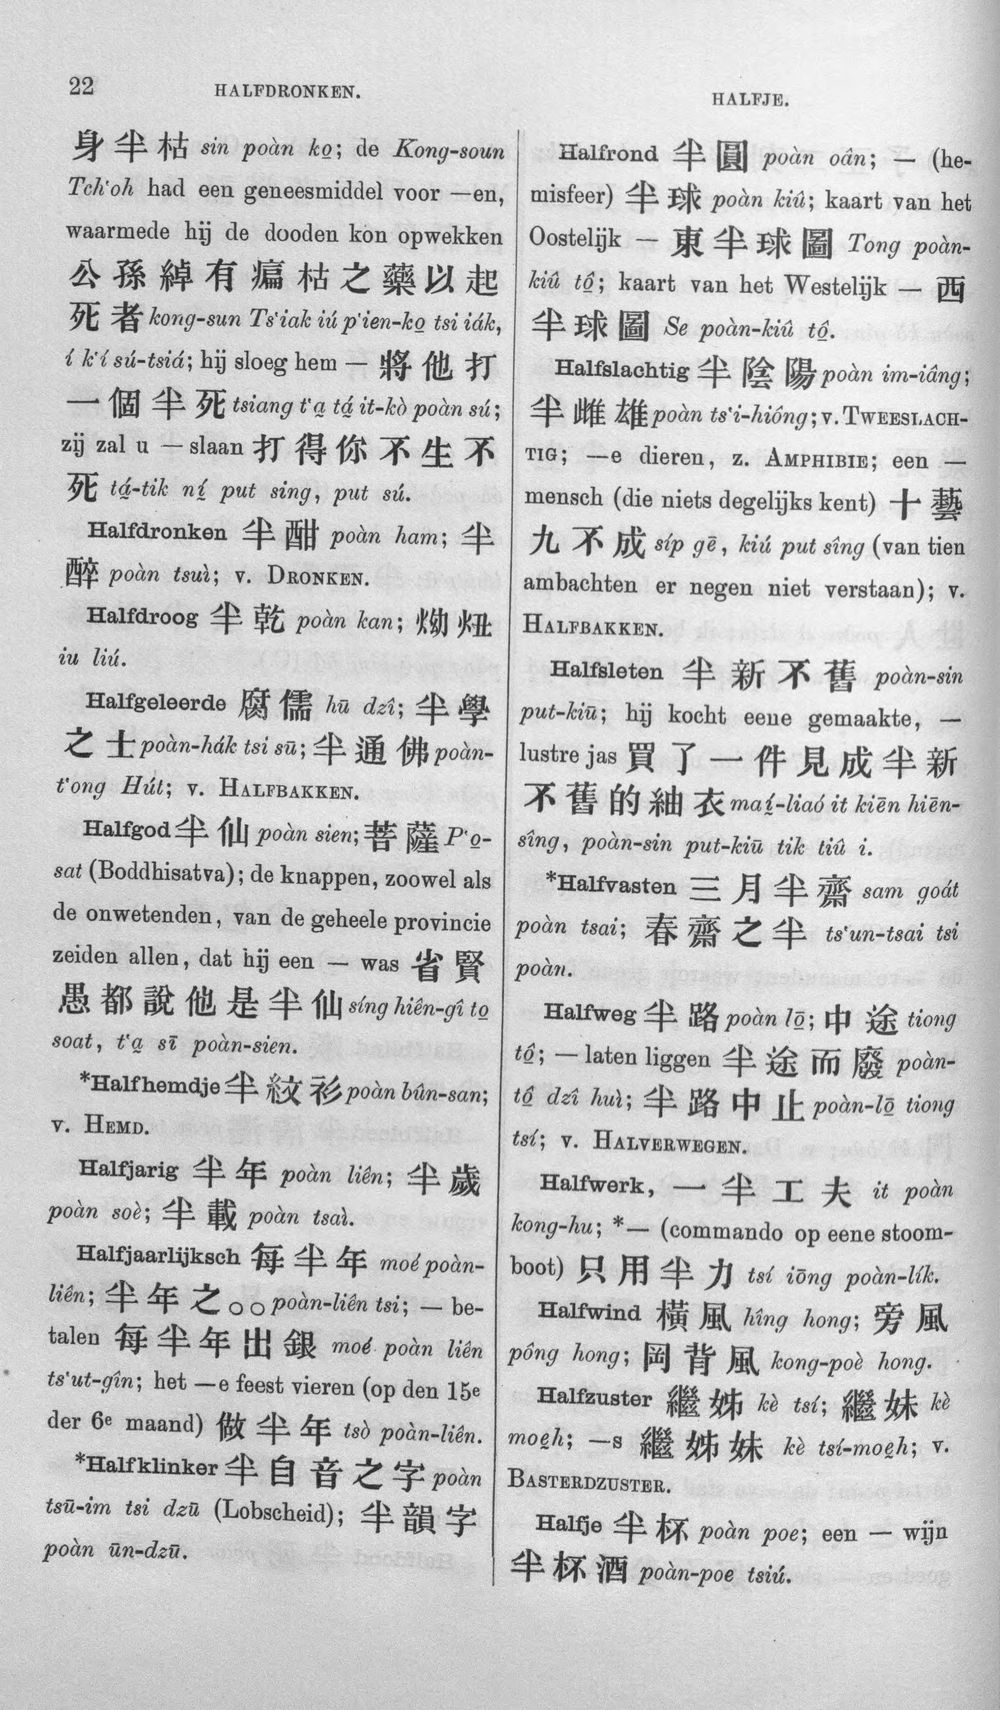 22
HALFDRONKEN.
HALFJE.
身半枯 sin poàn ko̱; de Kong-soun
Tch'oh had een geneesmiddel voor —en,
waarmede hij de dooden kon opwekken
公孫綽有痛枯之藥以起
死者 kong-sun Ts'iak iú p'ien-ko̱ tsi iák,
í k'í sú-tsiá; hij sloeg hem — 將他打
一個半死 tsiang t'a̱ tá̱ it-kò poàn sú;
zij zal u — slaan 打得你不生不
死 tá̱-tik ní̱ put sing, put sú.
Halfdronken 半酣 poàn ham; 半
醉 poàn tsuì; v. DRONKEN.
Halfdroog 半乾 poàn kan;
iu liú.
Halfgeleerde 腐儒 hū dzî; 半學
之士 poàn-hák tsi sū; 半通佛 poàn-
t'ong Hút; v. HALFBAKKEN.
Halfgod 半仙 poàn sien; 菩薩 P'o̱-
sat (Boddhisatva); de knappen, zoowel als
de onwetenden, van de geheele provincie
zeiden allen, dat hij een — was 省賢
愚都說他是半仙 síng hiên-gî to̱
soat, t'a̱ sī poàn-sien.
*Halfhemdje 半紋衫 poàn bûn-san;
v. HEMD.
Halfjarig 半年 poàn liên; 半歲
poàn soè; 半載 poàn tsaì.
Halfjaarlijksch 每半年 moé poàn-
liên; 半年之○○ poàn-liên tsi; — be-
talen 每半年出銀 moé poàn liên
ts'ut-gîn; het —e feest vieren (op den 15e
der 6e maand) 做半年 tsò poàn-liên.
*Halfklinker 半自音之字 poàn
tsū-im tsi dzū (Lobscheid); 半韻字
poàn ūn-dzū.
Halfrond 半圓 poàn oân; — (he-
misfeer) 半球 poàn kiû; kaart van het
Oostelijk — 東半球圖 Tong poàn-
kiû tô̱; kaart van het Westelijk — 西
半球圖 Se poàn-kiû tô̱.
Halfslachtig 半陰陽 poàn im-iâng;
半雌雄 poàn ts'i-hióng; v. TWEESLACH-
TIG; —e dieren, z. AMPHIBIE; een —
mensch (die niets degelijks kent) 十藝
九不成 síp gē, kiú put sîng (van tien
ambachten er negen niet verstaan); v.
HALFBAKKEN.
Halfsleten 半新不舊 poàn-sin
put-kiū; hij kocht eene gemaakte, —
lustre jas 買了一件見成半新
不舊的紬衣 maí̱-liaó it kiēn hiēn-
sîng, poàn-sin put-kiū tik tiû i.
*Halfvasten 三月半齋 sam goát
poàn tsai; 春齋之半 ts'un-tsai tsi
poàn.
Halfweg 半路 poàn lō̱; 中途 tiong
tô̱; — laten liggen 半途而廢 poàn-
tô̱ dzî huì; 半路中止 poàn-lō̱ tiong
tsí; v. HALVERWEGEN.
Halfwerk, 一半工夫 it poàn
kong-hu; *— (commando op eene stoom-
boot) 只用半力 tsí iōng poàn-lík.
Halfwind 橫風 hîng hong; 旁風
pông hong; 岡背風 kong-poè hong.
Halfzuster 繼姊 kè tsí; 繼妹 kè
moe̱h; —s 繼姊妹 kè tsí-moe̱h; v.
BASTERDZUSTER.
Halfje 半杯 poàn poe; een — wijn
半杯酒 poàn-poe tsiú.